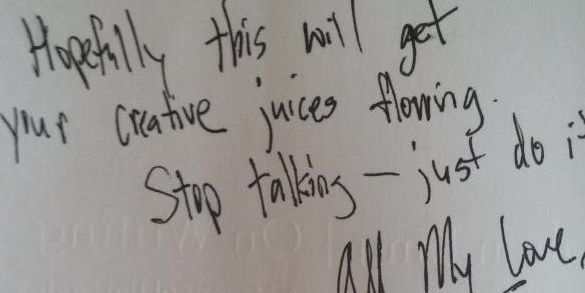 Hopefully this will get
your creative juices flowing.
Stop talking – just do it
All My Love,